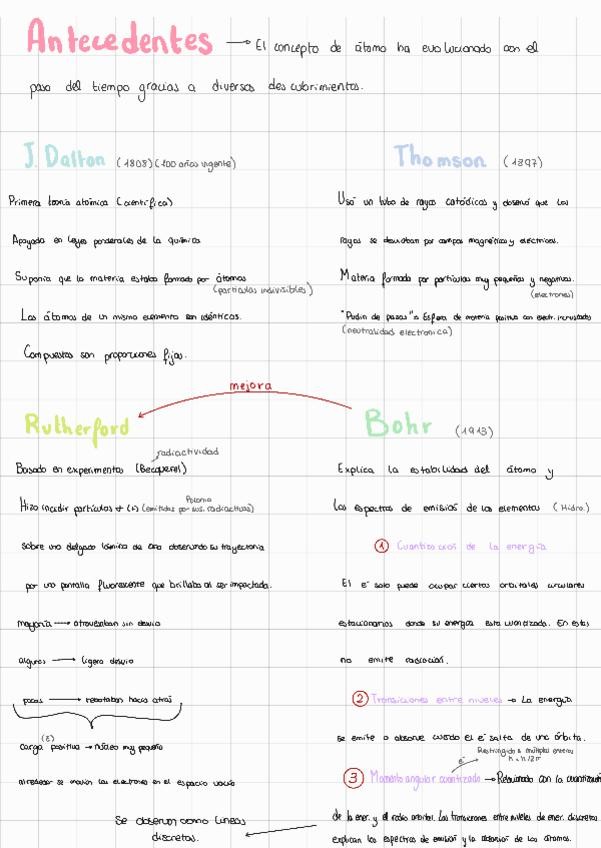 Antecedentes → El concepto de átomo ha evolucionado con el
paso del tiempo gracias a diversos descubrimientos.
J. Dalton (1808) (100 años vigente)
Primera teoría atómica (científica)
Apoyada en leyes ponderales de la química
Suponía que la materia estaba formada por átomos
(partículas indivisibles)
Los átomos de un mismo elemento son idénticos.
Compuestos son proporciones fijas.
Thomson (1897)
Usó un tubo de rayos catódicos y observó que los
rayos se desviaban por campos magnéticos y eléctricos.
Materia formada por partículas muy pequeñas y negativas.
(electrones)
"Pudin de pasas" = Esfera de materia positiva con electr. incrustados
(neutralidad electronica)
mejora
Rutherford
radiactividad
Basado en experimentos (Becquerel)
Polonio
Hizo incidir partículas + (α) (emitidas por sus. radiactivas)
sobre una delgada lámina de oro observando su trayectoria
por una pantalla fluorescente que brillaba al ser impactada.
mayoría → atravesaban sin desvío
algunas → ligero desvío
pocas → rebotaban hacia atrás
carga positiva → núcleo muy pequeño
alrededor se movían los electrones en el espacio vacío
Bohr (1913)
Explica la estabilidad del átomo y
los espectros de emisión de los elementos (Hidro.)
① Cuantización de la energía
El e⁻ solo puede ocupar ciertas orbitales circulares
estacionarios donde su energía esta cuantizada. En estas
no emite radiación.
② Transiciones entre niveles → La energía
se emite o absorve cuando el e⁻ salta de una órbita.
Restringido a múltiplos enteros
e⁻ h · n/2π
③ Momento angular cuantizado → Relacionado con la cuantización
de la ener. y el radio orbital. Las transiciones entre niveles de ener. discretos
explican los espectros de emisión y la absorción de los átomos.
Se observan como líneas
discretas.